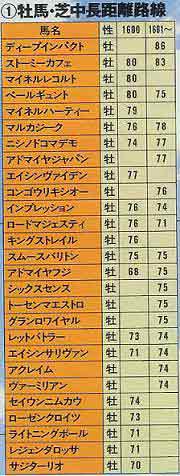 ①牡馬・芝中長距離路線
馬名 性 1600 1601~
ディープインパクト 牡 86
ストーミーカフェ 牡 80 83
マイネルレコルト 牡 80
ペールギュント 牡 80 75
マイネルハーティー 牡 79
マルカジーク 牡 76 78
ニシノドコマデモ 牡 74 77
アドマイヤジャパン 牡 77
エイシンヴァイデン 牡 77
コンゴウリキシオー 牡 76
インプレッション 牡 76 74
ロードマジェスティ 牡 76 71
キングストレイル 牡 76
スムースバリトン 牡 75 75
アドマイヤフジ 牡 68 75
シックスセンス 牡 75
トーセンマエストロ 牡 75
グランロワイヤル 牡 75
レットバトラー 牡 73 74
エイシンサリヴァン 牡 71 74
アクレイム 牡 74
ヴァーミリアン 牡 74
セイウンニムカウ 牡 74
ローゼンクロイツ 牡 73
ライトニングボール 牡 71
レジェンダロッサ 牡 71
サジターリオ 牡 70